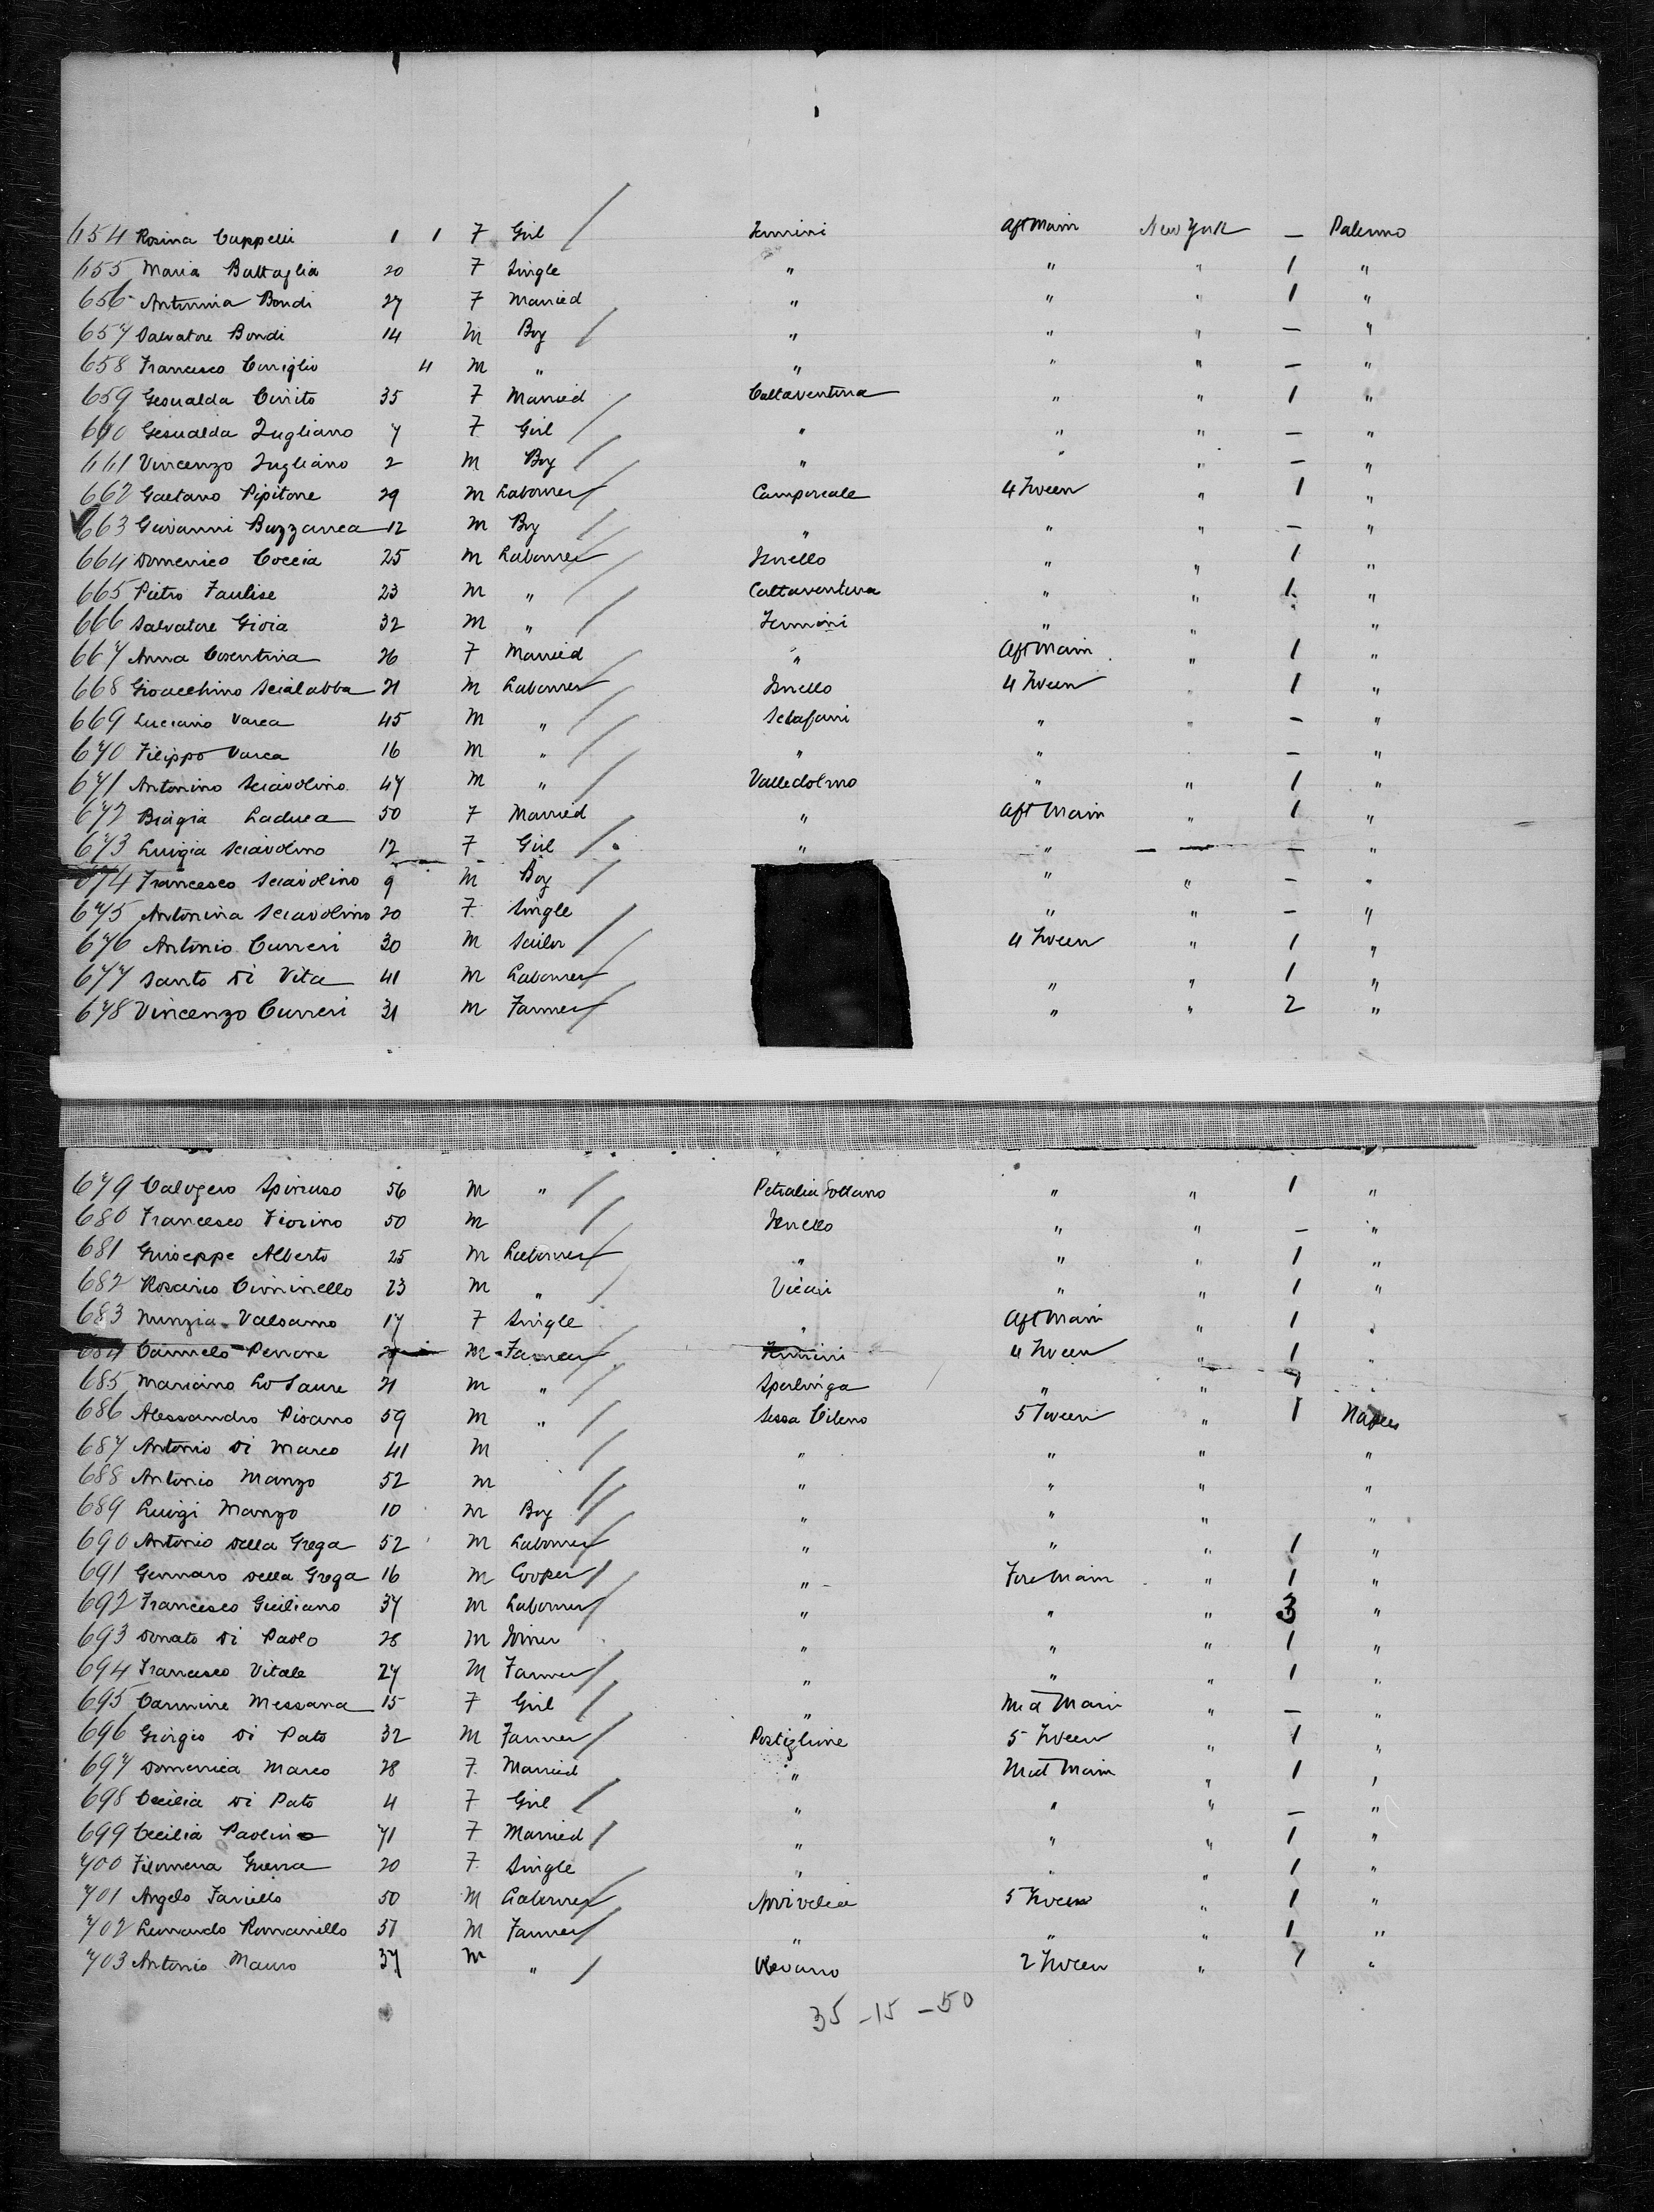 654 Rosina Cuppelli 1 1 F Girl Termini Aft Main New York — Palermo
655 Maria Battaglia 20 F Single " " " 1 "
656 Antonina Bondi 27 F Married " " " 1 "
657 Salvatore Bondi 14 M Boy " " " — "
658 Francesco Coniglio 4 M " " " " — "
659 Gesualda Cirrito 35 F Married Caltaventura " " 1 "
660 Gesualda Zugliano 7 F Girl " " " — "
661 Vincenzo Zugliano 2 M Boy " " " — "
662 Gaetano Pipitone 29 M Labourer Camporeale 4 Tween " 1 "
663 Giovanni Buzzanca 12 M Boy " " " — "
664 Domenico Coccia 25 M Labourer Isnello " " 1 "
665 Pietro Faulise 23 M " Caltaventura " " 1 "
666 Salvatore Gioia 32 M " Termini " " "
667 Anna Cosentina 26 F Married " Aft Main " 1 "
668 Gioacchino Scialabba 21 M Labourer Isnello 4 Tween " 1 "
669 Luciano Varca 45 M " Sclafani " " — "
670 Filippo Varca 16 M " " " — "
671 Antonino Sciavolino 47 M " Valledolmo " " 1 "
672 Biagia Laduca 50 F Married " Aft Main " 1 "
673 Luigia Sciavolino 12 F Girl " " — — "
674 Francesco Sciavolino 9 M Boy " " — "
675 Antonina Sciavolino 20 F Single " " — "
676 Antonio Curreri 30 M Sailor 4 Tween " 1 "
677 Santo Di Vita 41 M Labourer " " 1 "
678 Vincenzo Curreri 31 M Farmer " " 2 "
679 Calogero Spinuso 56 M " Petralia Sottano " " 1 "
680 Francesco Fiorino 50 M Isnello " " — "
681 Guiseppe Alberto 25 M Labourer " " " 1 "
682 Rosario Ciminello 23 M " Vicari " " 1 "
683 Nunzia Valsamo 17 F Single " Aft Main " 1 "
684 Carmelo Perrone M Farmer Termini 4 Tween " 1 "
685 Mariano Lo Saure 21 M " Sperlinga " " 1 "
686 Alessandro Pisano 59 M " Sessa Cileno 5 Tween " 1 Naples
687 Antonio Di Marco 41 M " " " "
688 Antonio Manzo 52 M " " " "
689 Luigi Manzo 10 M Boy " " " "
690 Antonio Della Grega 52 M Labourer " " " 1 "
691 Gennaro Della Grega 16 M Cooper " Fore Main " 1 "
692 Francesco Giuliano 37 M Labourer " " " 3 "
693 Donato Di Paolo 28 M Joiner " " " 1 "
694 Francesco Vitale 27 M Farmer " " " 1 "
695 Carmine Messana 15 F Girl " Mid Main " — "
696 Giorgio Di Pato 32 M Farmer Postiglione 5 Tween " 1 "
697 Domenica Marco 28 F Married " Mid Main " 1 "
698 Cecilia Di Pato 4 F Girl " " " — "
699 Cecilia Paolino 71 F Married " " " 1 "
700 Filomena Guerra 20 F Single " " " 1 "
701 Angelo Faniello 50 M Labourer 5 Tween " 1 "
702 Leonardo Romaniello 51 M Farmer " " " 1 "
703 Antonio Mauro 37 M " Olevano 2 Tween " 1 "
35 - 15 - 50